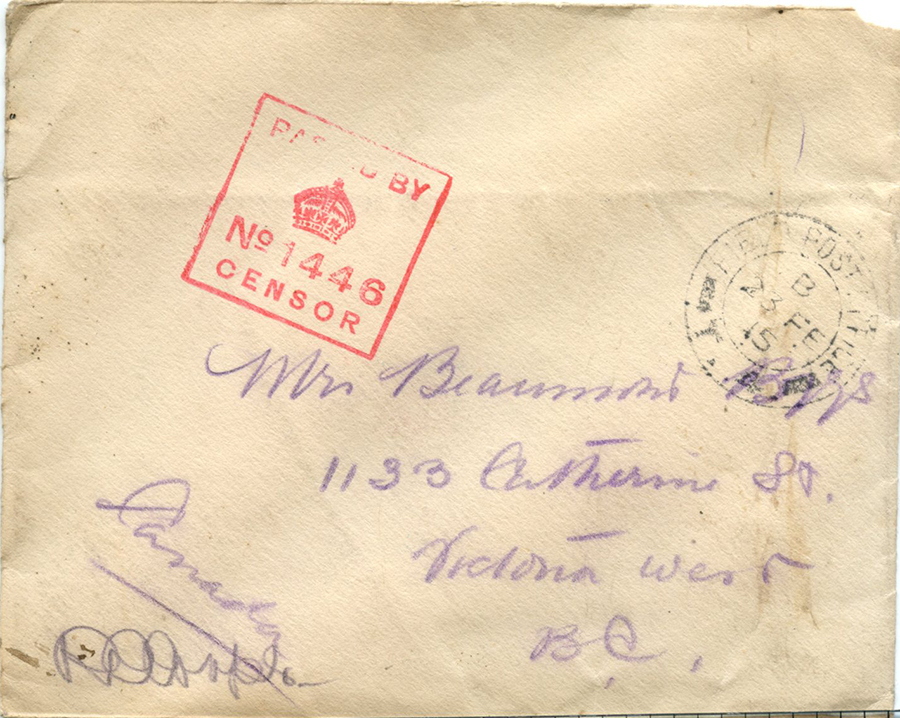 PASSED BY
No 1446
CENSOR
FIELD POST OFFICE
B
23 FE
15
Mrs Beaumont Boggs
1133 Catherine St.
Victoria West
B.C.
Canada